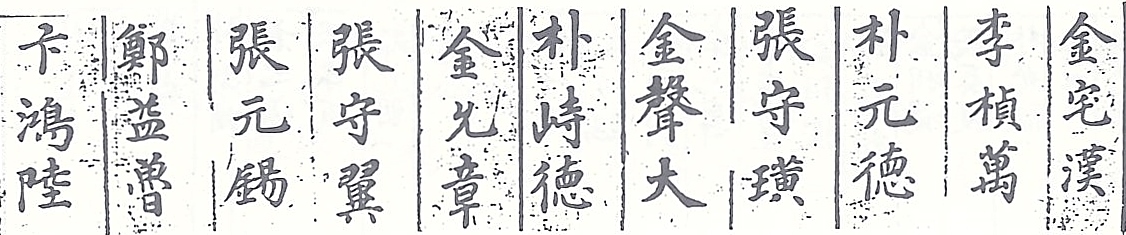 金宅漢
李楨萬
朴元德
張守璜
金聲大
朴峙德
金兌章
張守翼
張元錫
鄭益曽
卞鴻陸